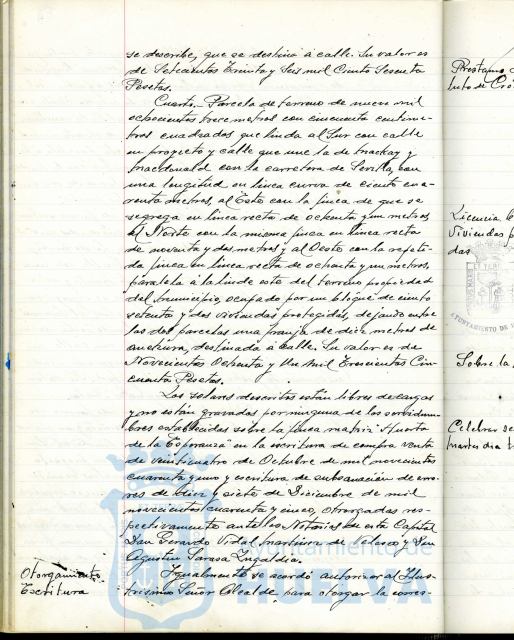 se describe, que se destina á calle. Su valor es
de Setecientos Treinta y Seis mil Ciento Sesenta
Pesetas.
Cuarto.- Parcela de terreno de nueve mil
ochocientos trece metros con cincuenta centíme-
tros cuadrados que linda al Sur con calle
en proyecto y calle que une la de Mackay y
Macdonald con la carretera de Sevilla, con
una longitud en linea curva de ciento cua-
renta metros, al Este con la finca de que se
segrega en linea recta de ochenta y un metros,
al Norte con la misma finca en linea recta
de noventa y dos metros y al Oeste con la repeti-
da finca en linea recta de ochenta y un metros,
paralela á la linde este del terreno propiedad
del municipio, ocupado por un bloque de ciento
setenta y dos viviendas protegidas, dejando entre
las dos parcelas una franja de diez metros de
anchura, destinada á calle. Su valor es de
Novecientos Ochenta y Un mil Trescientos Cin-
cuenta Pesetas.
Los solares descritos están libres de cargas
y no están gravados por ninguna de las servidum-
bres establecidas sobre la finca matriz "Huerta
de la Esperanza" en la escritura de compra venta
de veinticuatro de Octubre de mil novecientos
cuarenta y uno y escritura de subsanación de erro-
res de diez y siete de Diciembre de mil
novecientos cuarenta y cinco, otorgadas res-
pectivamente ante los Notarios de esta Capital
Don Gerardo Vidal Martinez de Velasco y Don
Agustin Sarasa Zugaldia.
Otorgamiento
Escritura
Igualmente se acordó autorizar al Ilus-
trisimo Señor Alcalde para otorgar la corres-
Prestamo
Licencia
Viviendas p
das
AYUNTAMIENTO DE
Sobre la
Celebrar se
martes dia
Ayuntamiento de
HUELVA